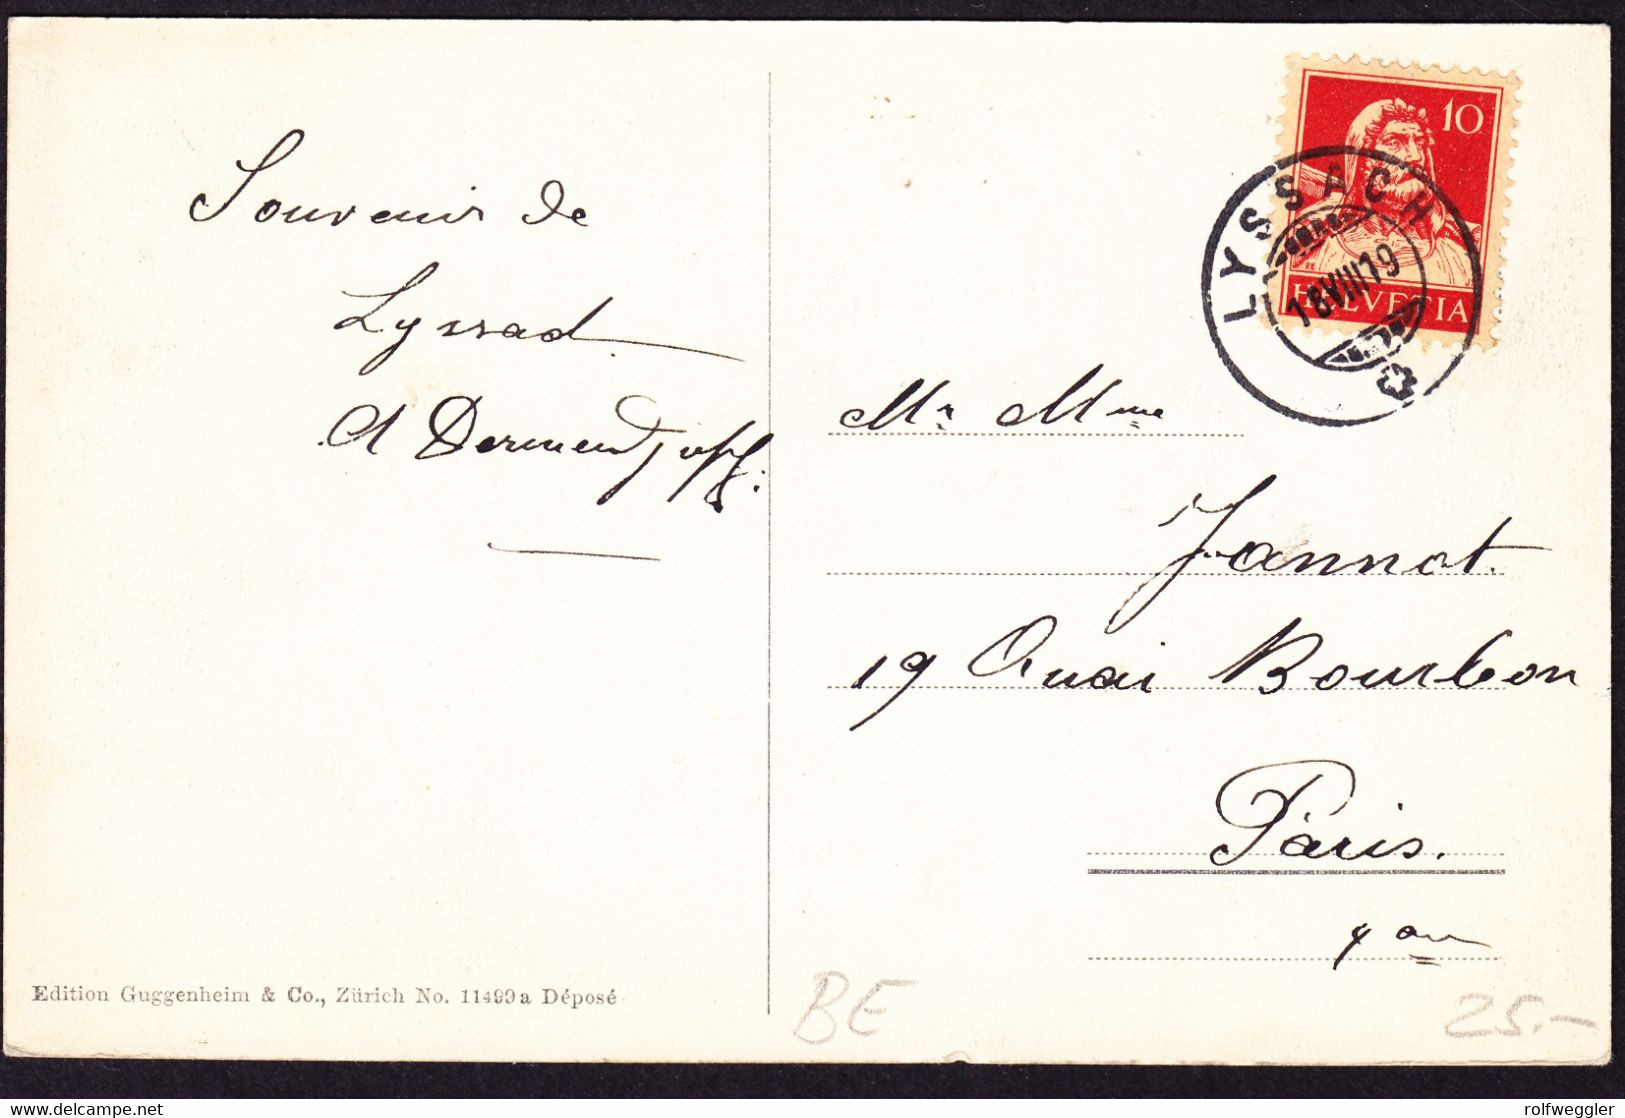 Souvenir de
Lyssad
A Dermentzoff:
Edition Guggenheim & Co., Zürich No. 11499a Déposé
10
HELVETIA
LYSSACH
18 VIII 19
Mr Mme
Jannot.
19 Quai Bourbon
Paris.
BE
25.-
delcampe.net
rolfweggler